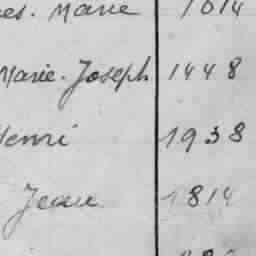 es. Marie 1614
Marie. Joseph 1448
Henri 1938
Jean 1814